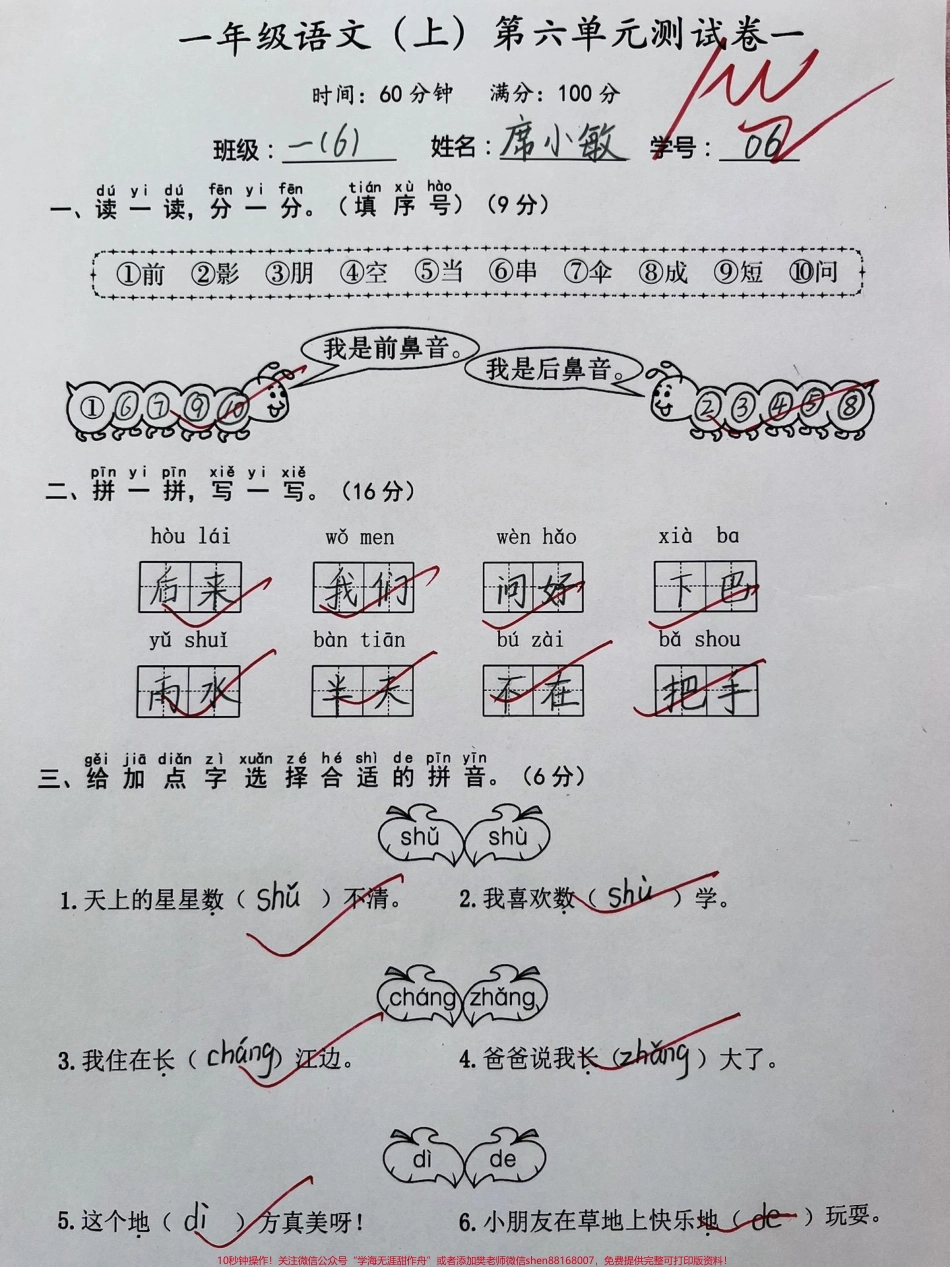 一年级语文（上）第六单元测试卷一
时间：60分钟 满分：100分
班级：一(6) 姓名：席小敏 学号：06
dú yi dú fēn yi fēn tián xù hào
一、读一读，分一分。（填序号）（9分）
①前 ②影 ③朋 ④空 ⑤当 ⑥串 ⑦伞 ⑧成 ⑨短 ⑩问
我是前鼻音。 我是后鼻音。
① ⑥ ⑦ ⑨ ⑩ ② ③ ④ ⑤ ⑧
pīn yi pīn xiě yi xiě
二、拼一拼，写一写。（16分）
hòu lái wǒ men wèn hǎo xià ba
后来 我们 问好 下巴
yǔ shuǐ bàn tiān bú zài bǎ shou
雨水 半天 不在 把手
gěi jiā diǎn zì xuǎn zé hé shì de pīn yīn
三、给加点字选择合适的拼音。（6分）
shǔ shù
1.天上的星星数（shǔ）不清。 2.我喜欢数（shù）学。
cháng zhǎng
3.我住在长（cháng）江边。 4.爸爸说我长（zhǎng）大了。
dì de
5.这个地（dì）方真美呀！ 6.小朋友在草地上快乐地（de）玩耍。
10秒钟操作！关注微信公众号“学海无涯甜作舟”或者添加樊老师微信shen88168007，免费提供完整可打印版资料！